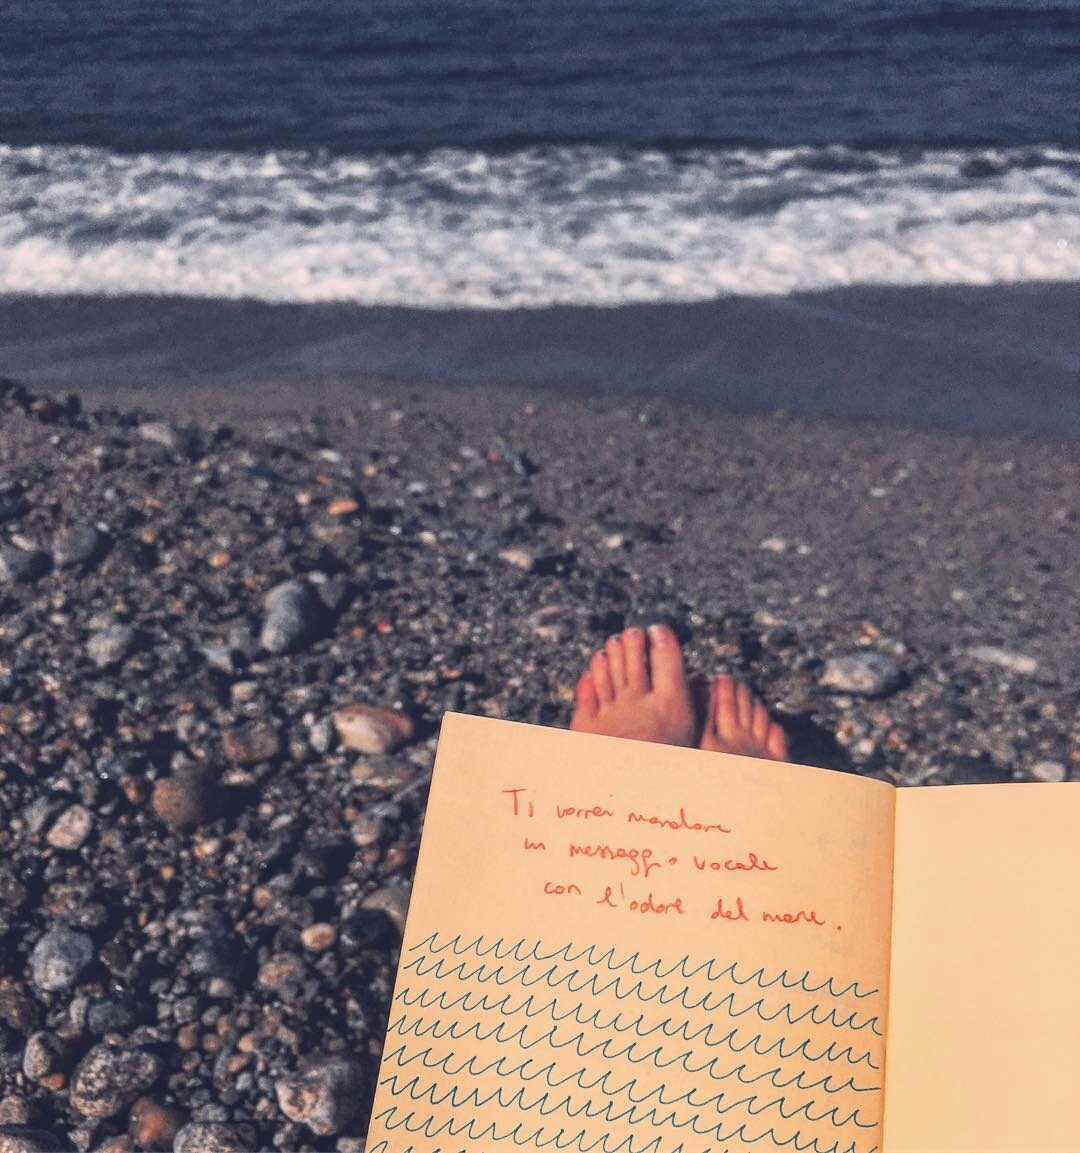 Ti vorrei mandare
un messaggio vocale
con l'odore del mare.